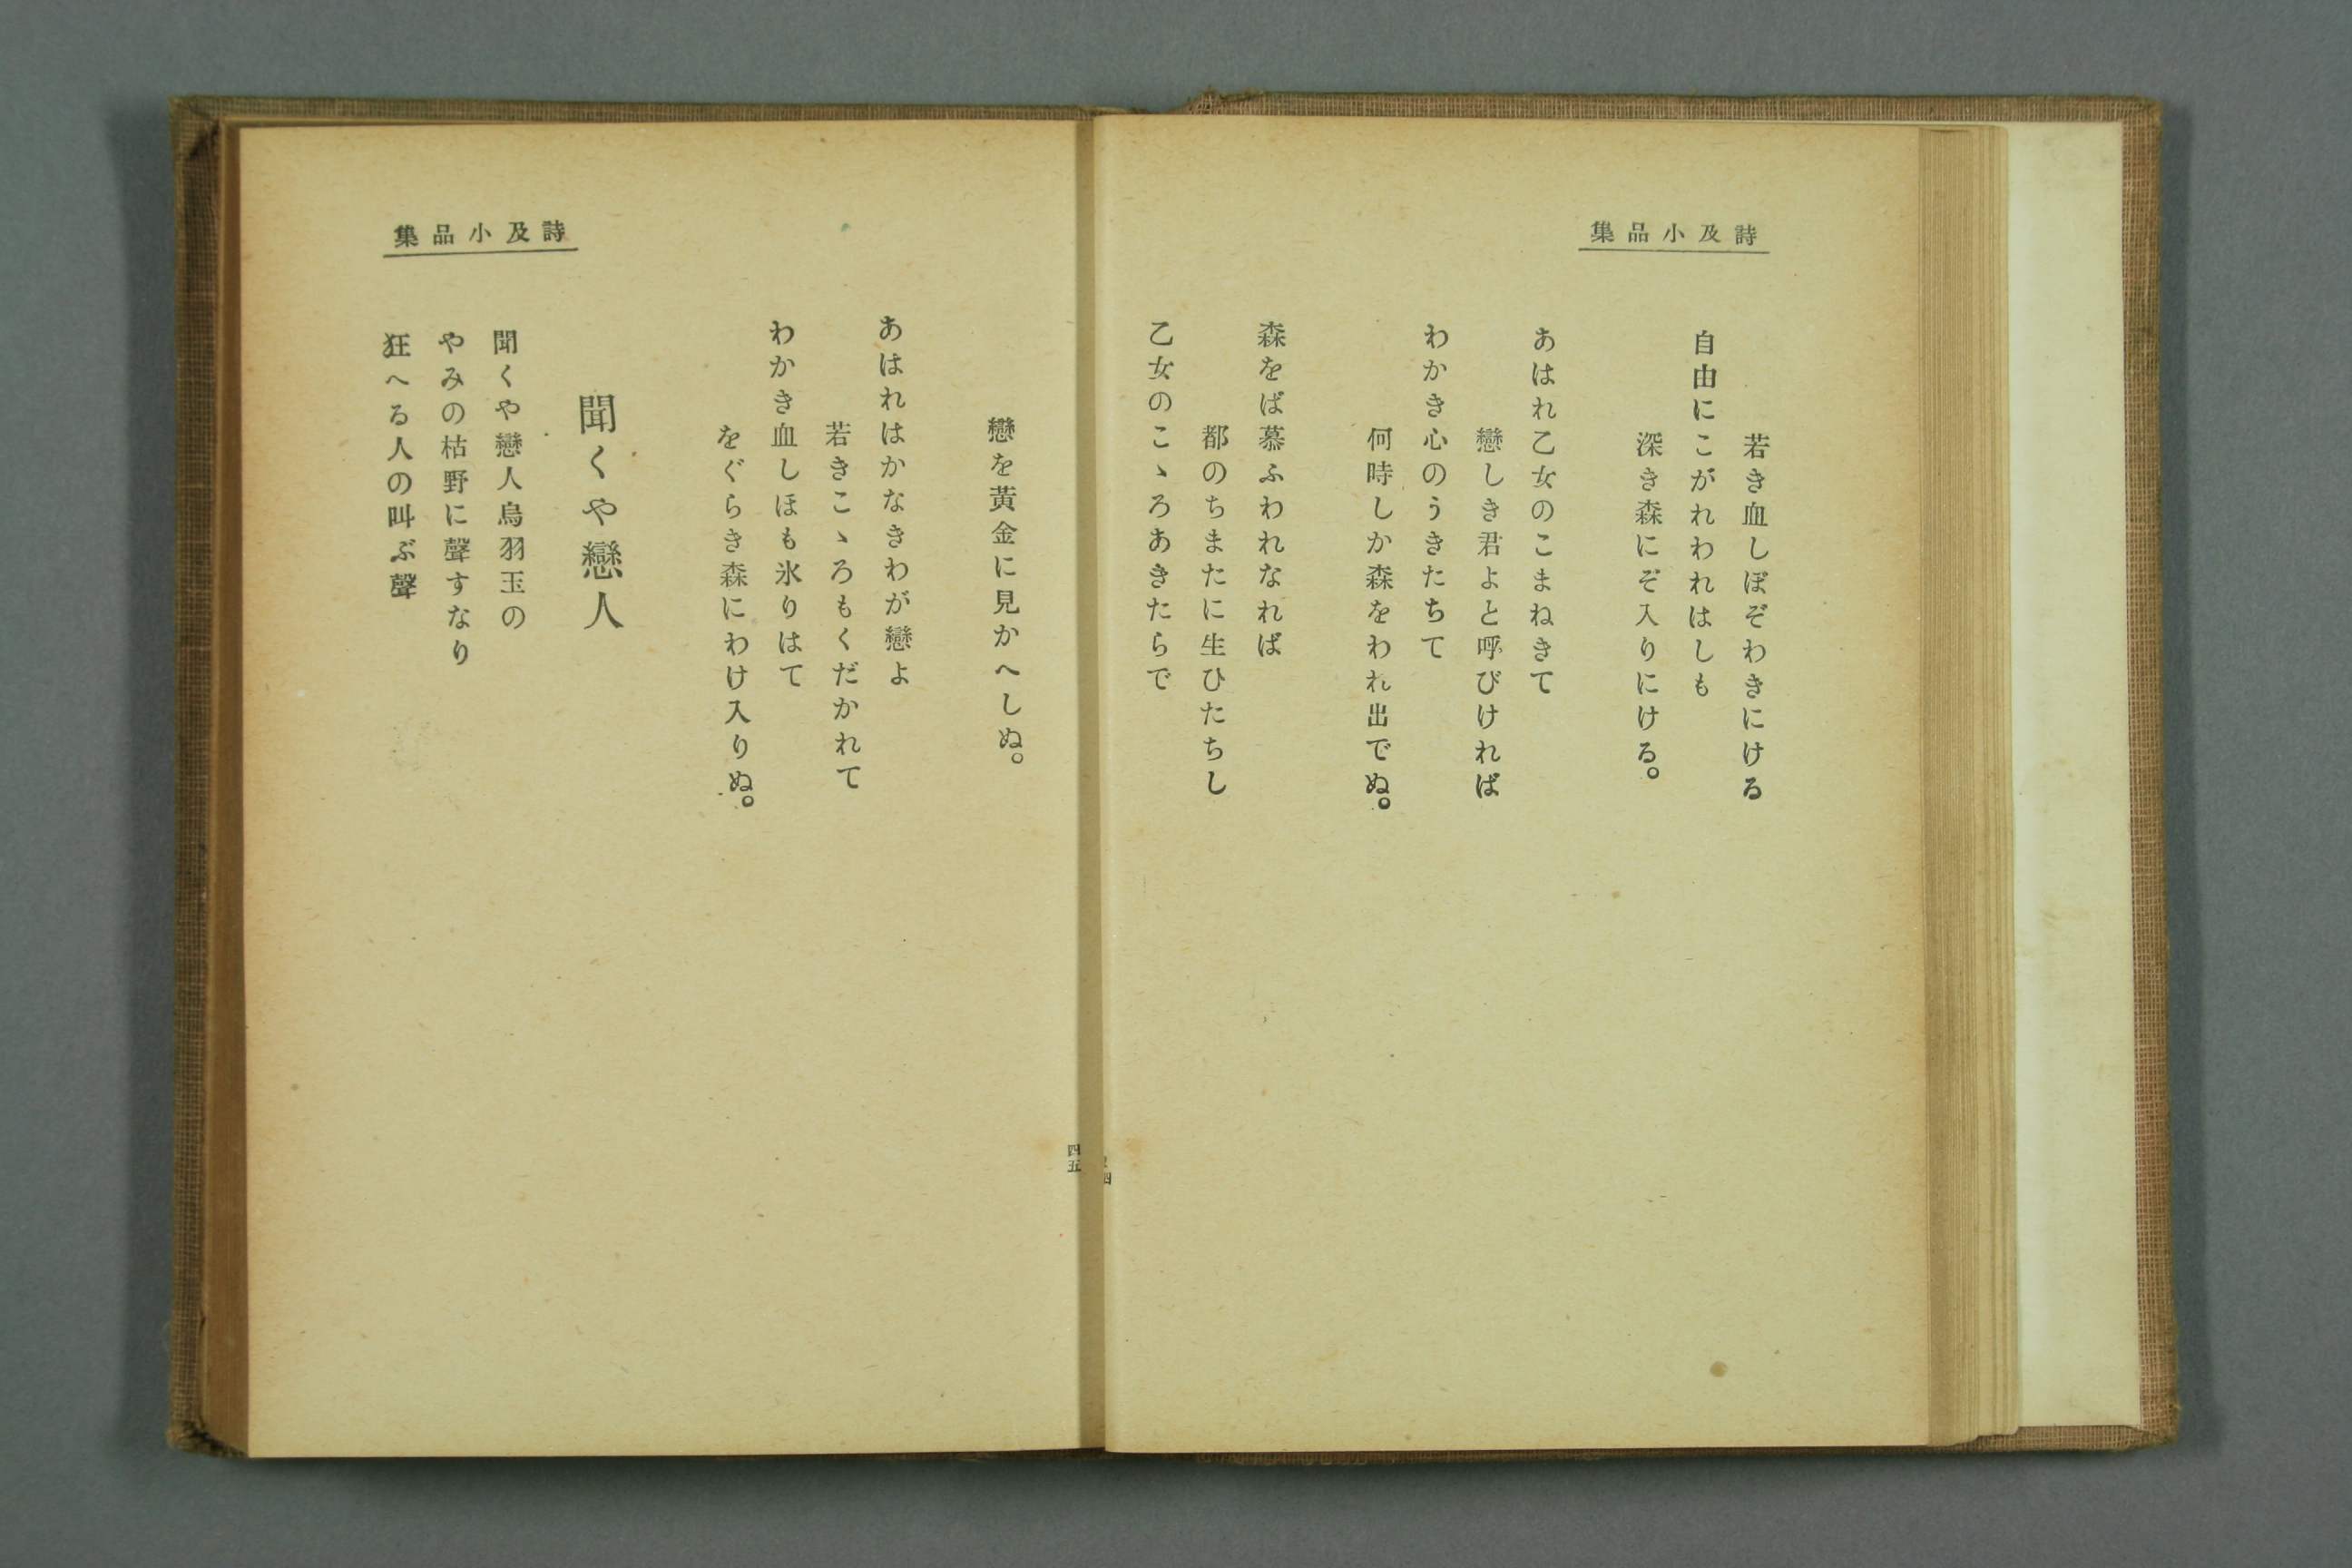 詩及小品集
若き血しぼぞわきにける
自由にこがれわれはしも
深き森にぞ入りにける。
あはれ乙女のこまねきて
戀しき君よと呼びければ
わかき心のうきたちて
何時しか森をわれ出でぬ。
森をば慕ふわれなれば
都のちまたに生ひたちし
乙女のこゝろあきたらで
詩及小品集
戀を黄金に見かへしぬ。
あはれはかなきわが戀よ
若きこゝろもくだかれて
わかき血しほも氷りはて
をぐらき森にわけ入りぬ。
聞くや戀人
聞くや戀人烏羽玉の
やみの枯野に聲すなり
狂へる人の叫ぶ聲
四五